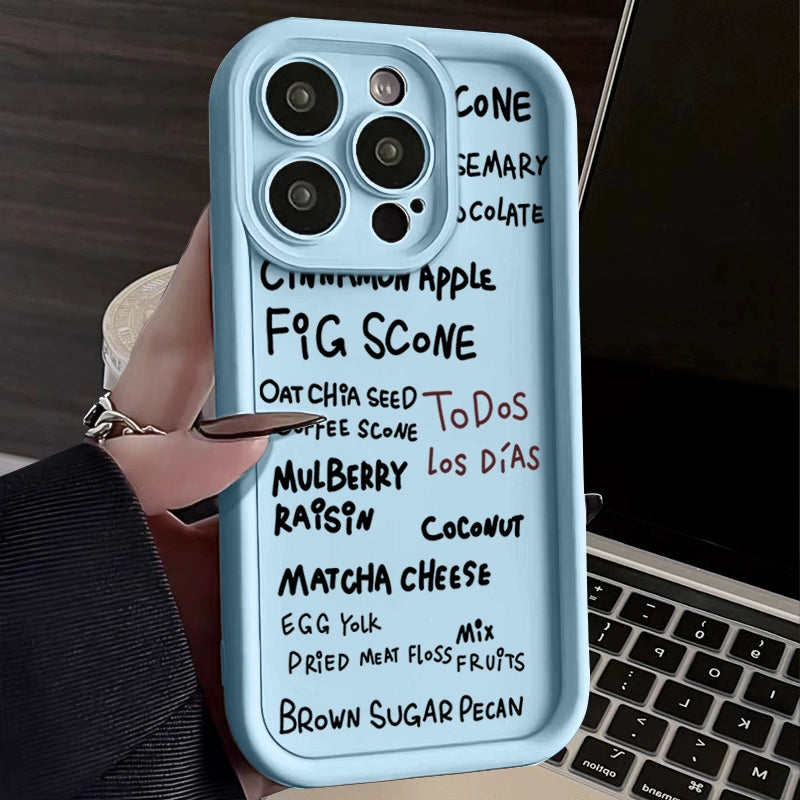 CONE
SEMARY
OCOLATE
CINNAMON APPLE
FIG SCONE
OAT CHIA SEED
TODOS
COFFEE SCONE
LOS DÍAS
MULBERRY
RAISIN
COCONUT
MATCHA CHEESE
EGG YOLK
MIX
DRIED MEAT FLOSS
FRUITS
BROWN SUGAR PECAN
option
command